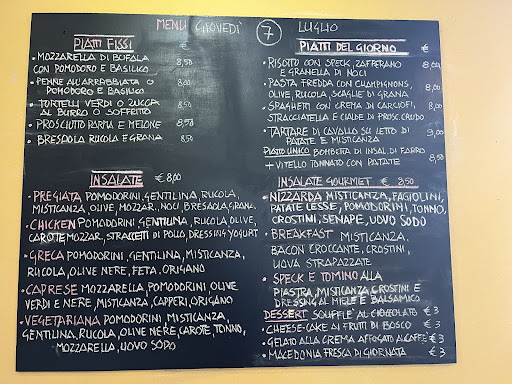 MENU GIOVEDÌ 7 LUGLIO
PIATTI FISSI €
• MOZZARELLA DI BUFALA
CON POMODORO E BASILICO 8,50
• PENNE ALL'ARRABBIATA O
POMODORO E BASILICO
• TORTELLI VERDI O ZUCCA
AL BURRO O SOFFRITTO
• PROSCIUTTO PARMA E MELONE 8,50
• BRESAOLA RUCOLA E GRANA 8,50
INSALATE € 8,00
• PREGIATA POMODORINI, GENTILINA, RUCOLA,
MISTICANZA, OLIVE, MOZZAR. NOCI, BRESAOLA, GRANA.
• CHICKEN POMODORINI, GENTILINA, RUCOLA, OLIVE,
CAROTE, MOZZAR, STRACCETTI DI POLLO, DRESSING YOGURT
• GRECA POMODORINI, GENTILINA, MISTICANZA,
RUCOLA, OLIVE NERE, FETA, ORIGANO
• CAPRESE MOZZARELLA, POMODORINI, OLIVE
VERDI E NERE, MISTICANZA, CAPPERI, ORIGANO
• VEGETARIANA POMODORINI, MISTICANZA,
GENTILINA, RUCOLA, OLIVE NERE, CAROTE, TONNO,
MOZZARELLA, UOVO SODO
PIATTI DEL GIORNO €
• RISOTTO CON SPECK, ZAFFERANO
E GRANELLA DI NOCI 8,00
• PASTA FREDDA CON CHAMPIGNONS,
OLIVE, RUCOLA, SCAGLIE DI GRANA 8,00
• SPAGHETTI CON CREMA DI CARCIOFI,
STRACCIATELLA E CIALDE DI PROSC. CRUDO
• TARTARE DI CAVALLO SU LETTO DI
PATATE E MISTICANZA 9,00
PIATTO UNICO BOMBETTA DI INSAL. DI FARRO
+ VITELLO TONNATO CON PATATE 8,50
INSALATE GOURMET € 8,50
• NIZZARDA MISTICANZA, FAGIOLINI,
PATATE LESSE, POMODORINI, TONNO,
CROSTINI, SENAPE, UOVO SODO
• BREAKFAST MISTICANZA,
BACON CROCCANTE, CROSTINI,
UOVA STRAPAZZATE
• SPECK E TOMINO ALLA
PIASTRA, MISTICANZA, CROSTINI E
DRESSING AL MIELE E BALSAMICO
DESSERT SOUFFLE' AL CIOCCOLATO € 3
• CHEESE-CAKE AI FRUTTI DI BOSCO € 3
• GELATO ALLA CREMA AFFOGATO AL CAFFÈ € 3
• MACEDONIA FRESCA DI GIORNATA € 3